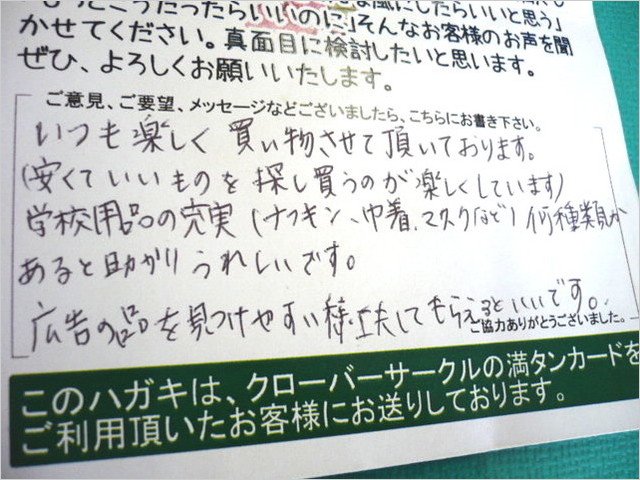 こうだったらいいのに」「こんな風にしたらいいと思う」
そんなお客様のお声を聞
かせてください。真面目に検討したいと思います。
ぜひ、よろしくお願いいたします。
ご意見、ご要望、メッセージなどございましたら、こちらにお書き下さい。
いつも楽しく買い物させて頂いております。
(安くていいものを探し買うのが楽しくしています)
学校用品の充実(ナフキン、巾着、マスクなど)何種類か
あると助かりうれしいです。
広告の品を見つけやすい様工夫してもらえるといいです。
ご協力ありがとうございました。
このハガキは、クローバーサークルの満タンカードを
ご利用頂いたお客様にお送りしております。